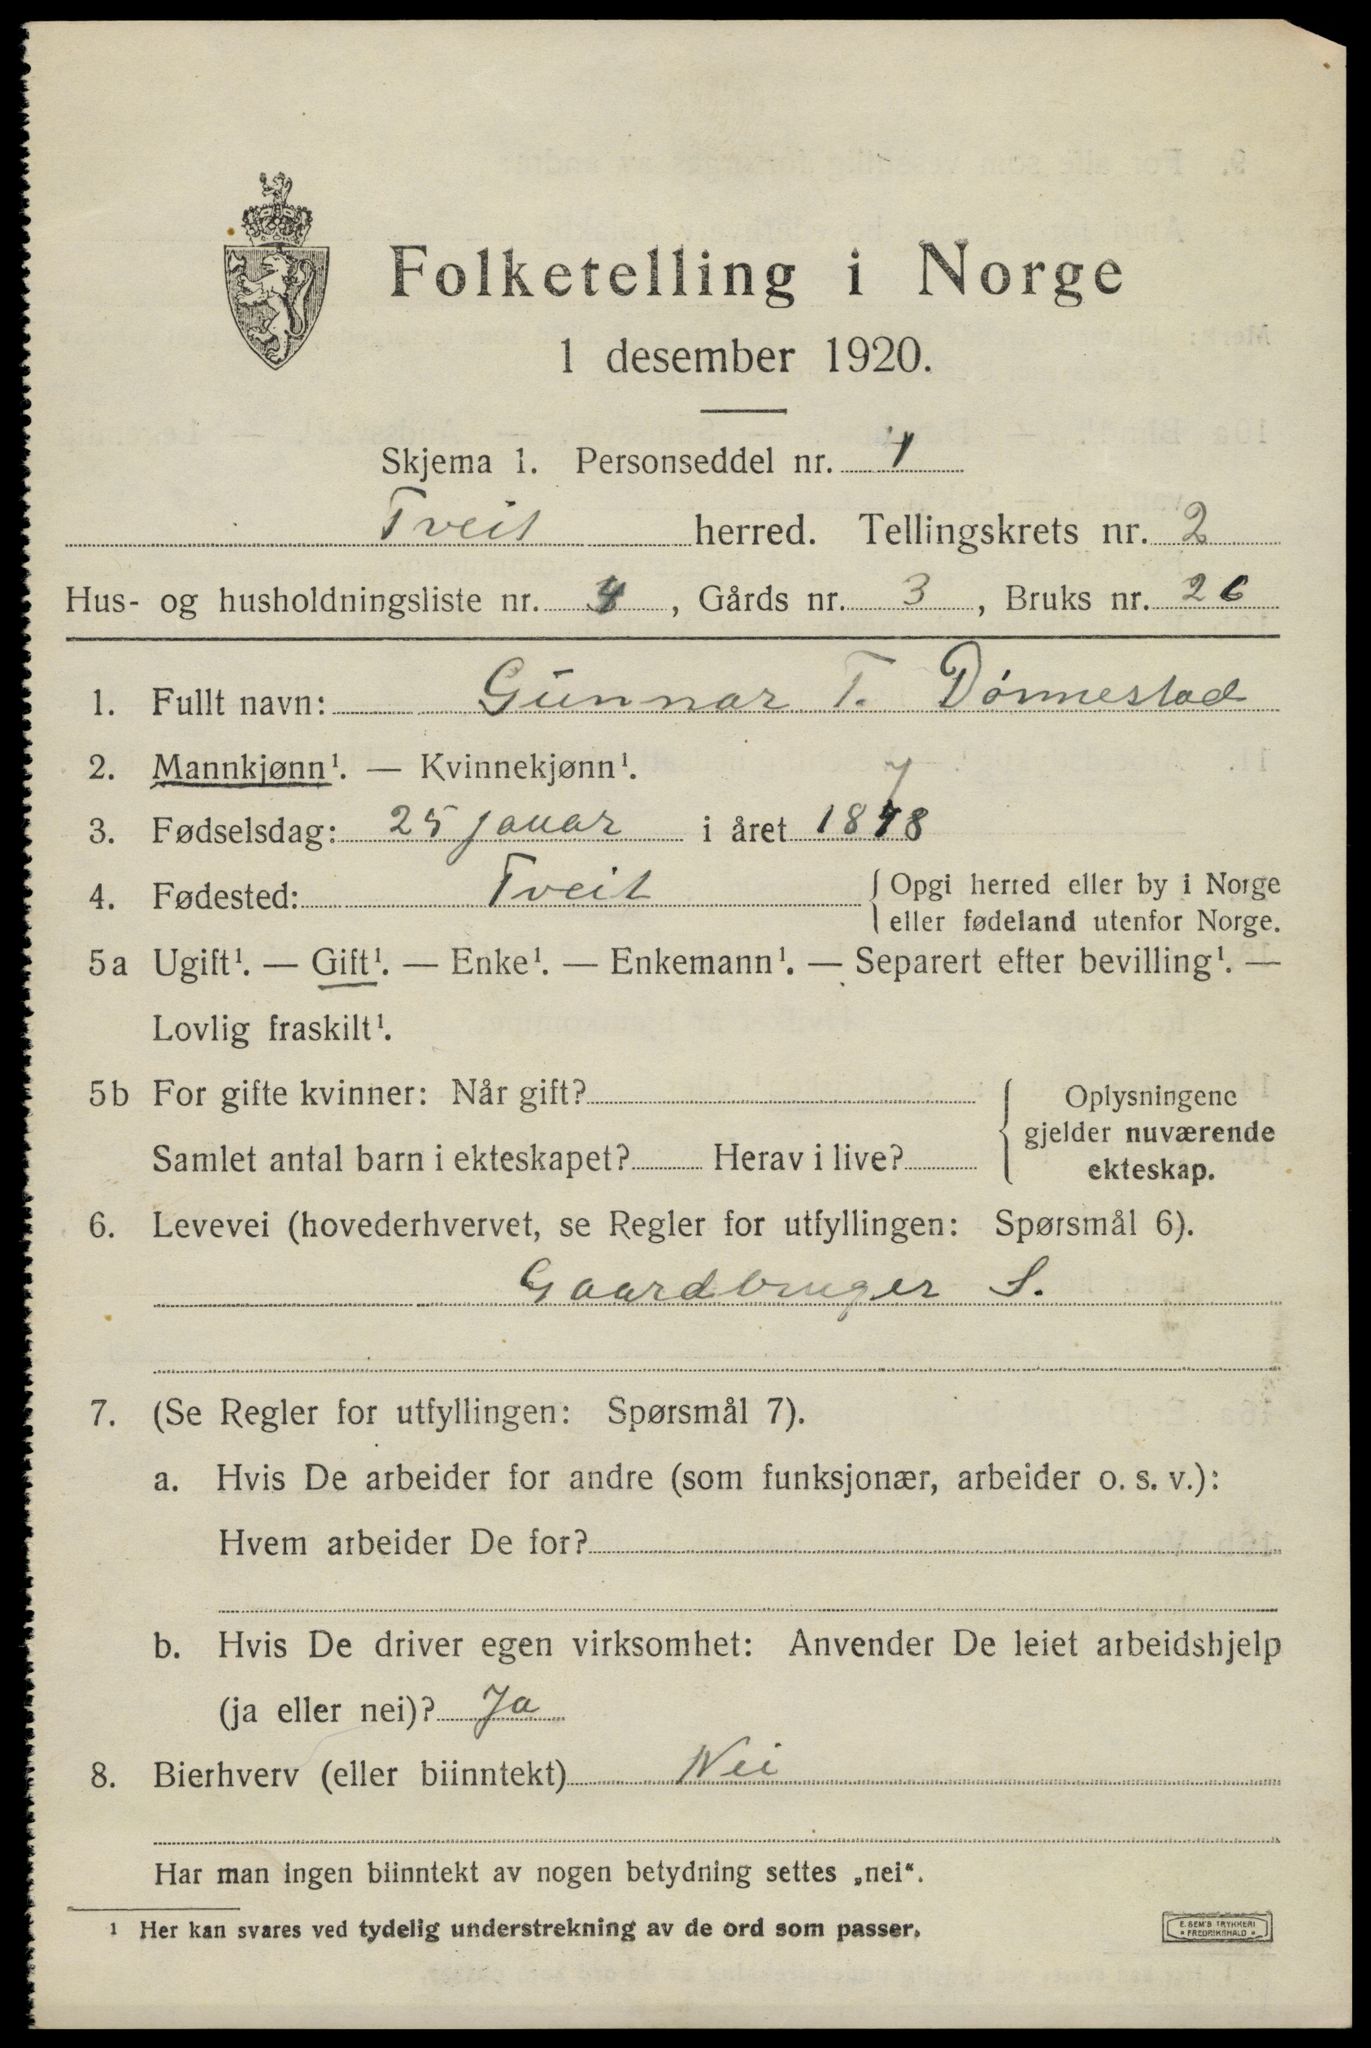 Folketelling i Norge
1 desember 1920.
Skjema 1. Personseddel nr. 1
Tveit herred. Tellingskrets nr. 2
Hus- og husholdningsliste nr. 4, Gårds nr. 3, Bruks nr. 26
1. Fullt navn: Gunnar T. Dønnestad
2. Mannkjønn¹. — Kvinnekjønn¹.
7
3. Fødselsdag: 25 januar i året 1878
4. Fødested: Tveit { Opgi herred eller by i Norge
eller fødeland utenfor Norge.
5a Ugift¹. — Gift¹. — Enke¹. — Enkemann¹. — Separert efter bevilling¹. —
Lovlig fraskilt¹.
5b For gifte kvinner: Når gift? { Oplysningene
gjelder nuværende
Samlet antal barn i ekteskapet? Herav i live? ekteskap.
6. Levevei (hovederhvervet, se Regler for utfyllingen: Spørsmål 6).
Gaardbruger S.
7. (Se Regler for utfyllingen: Spørsmål 7).
a. Hvis De arbeider for andre (som funksjonær, arbeider o. s. v.):
Hvem arbeider De for?
b. Hvis De driver egen virksomhet: Anvender De leiet arbeidshjelp
(ja eller nei)? Ja
8. Bierhverv (eller biinntekt) Nei
Har man ingen biinntekt av nogen betydning settes „nei“.
¹ Her kan svares ved tydelig understrekning av de ord som passer.
E. SEM'S TRYKKERI
FREDRIKSHALD